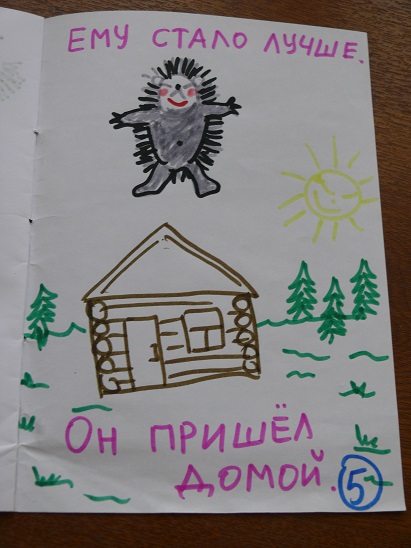 ЕМУ СТАЛО ЛУЧШЕ.
ОН ПРИШЁЛ
ДОМОЙ.
5